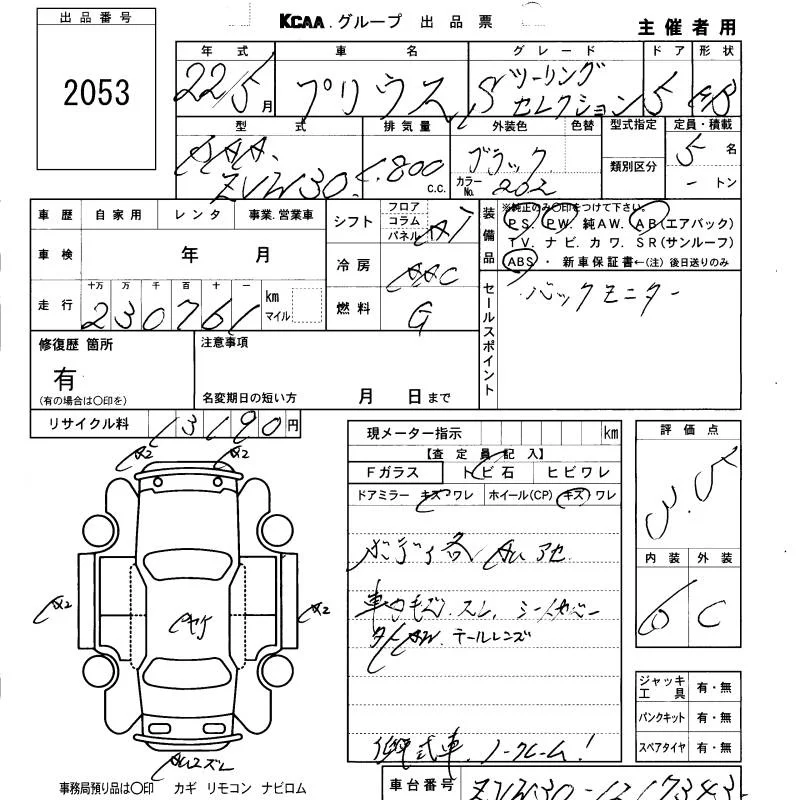 出品番号
2053
KCAA.グループ 出品票
主催者用
年式 車名 グレード ドア 形状
22/5月 プリウス Sツーリングセレクション 5 HB
型式 排気量 外装色 色替 型式指定 定員・積載
DAA. ZVW30. 1,800 c.c. ブラック カラーNo. 202 類別区分 5名
－トン
車歴 自家用 レンタ 事業.営業車
車検 年 月
走行 十万 万 千 百 十 一
230761 km マイル
シフト フロア コラム パネル AT
冷房 AAC
燃料 G
装備品
※純正のみ〇印をつけて下さい。
PS. PW. 純AW. AB(エアバック)
TV. ナビ. カワ. SR(サンルーフ)
ABS・新車保証書←(注)後日送りのみ
セールスポイント
バックモニター
修復歴 箇所
有
(有の場合は〇印を)
注意事項
名変期日の短い方 月 日まで
リサイクル料 13190円
現メーター指示 km
【査定員記入】
Fガラス トビ石 ヒビワレ
ドアミラー キズ ワレ ホイール(CP) キズ ワレ
ボディ各
スレ.
テールレンズ
ノークレーム!
評価点
3.5
内装 外装
C
ジャッキ工具 有・無
パンクキット 有・無
スペアタイヤ 有・無
A2 A2
A2 A2
ヤケ
事務局預り品は〇印 カギ リモコン ナビロム
車台番号 ZVW30-1217343